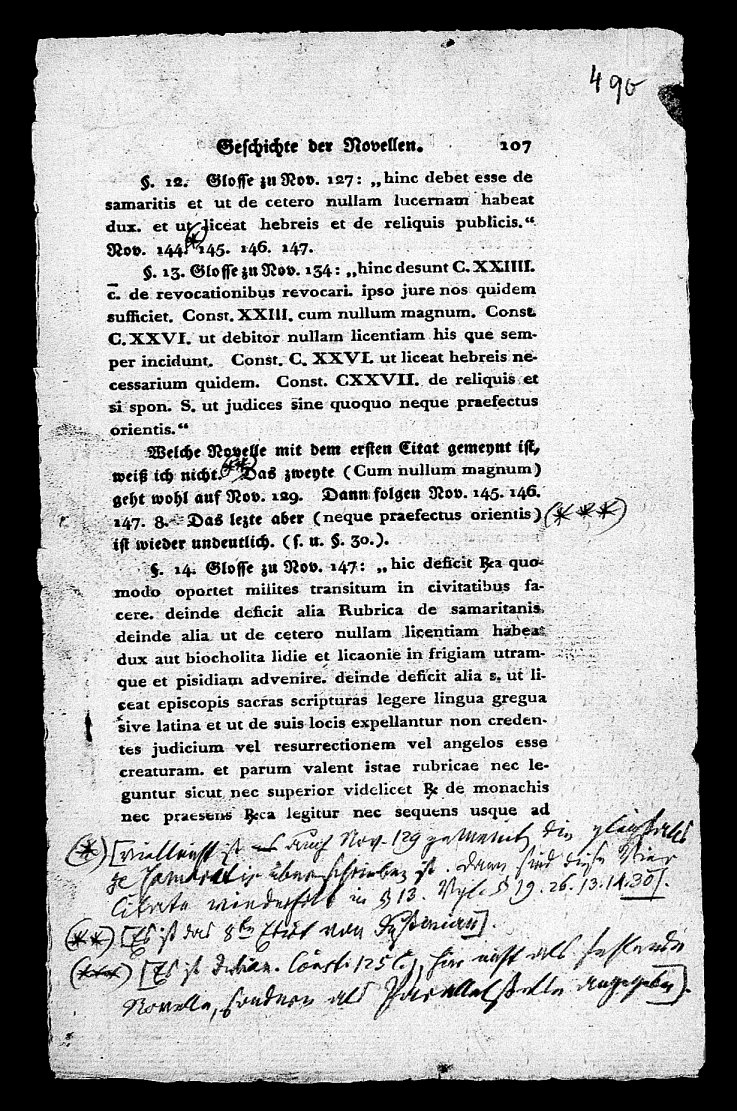 490
Geschichte der Novellen. 107
§. 12. Glosse zu Nov. 127: „hinc debet esse de
samaritis et ut de cetero nullam lucernam habeat
dux. et ut liceat hebreis et de reliquis publicis.“
Nov. 144. (*) 145. 146. 147.
§. 13. Glosse zu Nov. 134: „hinc desunt C. XXIIII.
c̅. de revocationibus revocari. ipso jure nos quidem
sufficiet. Const. XXIII. cum nullum magnum. Const.
C. XXVI. ut debitor nullam licentiam his que sem-
per incidunt. Const. C. XXVI. ut liceat hebreis ne-
cessarium quidem. Const. CXXVII. de reliquis et
si spon. S. ut judices sine quoquo neque praefectus
orientis.“
Welche Novelle mit dem ersten Citat gemeynt ist,
weiß ich nicht. (**) Das zweyte (Cum nullum magnum)
geht wohl auf Nov. 129. Dann folgen Nov. 145. 146.
147. 8. Das lezte aber (neque praefectus orientis) (***)
ist wieder undeutlich. (s. u. §. 30.).
§. 14. Glosse zu Nov. 147: „hic deficit ℞a quo-
modo oportet milites transitum in civitatibus fa-
cere. deinde deficit alia Rubrica de samaritanis.
deinde alia ut de cetero nullam licentiam habeat
dux aut biocholita lidie et licaonie in frigiam utram-
que et pisidiam advenire. deinde deficit alia s. ut li-
ceat episcopis sacras scripturas legere lingua gregua
sive latina et ut de suis locis expellantur non creden-
tes judicium vel resurrectionem vel angelos esse
creaturam. et parum valent istae rubricae nec le-
guntur sicut nec superior videlicet ℞ de monachis
nec praesens ℞ca legitur nec sequens usque ad
(*) [vielleicht ist es auch Nov. 129 gemeint, die gleichfalls
de Samaritis überschrieben ist. Dann sind diese Vier
Citate wiederholt in § 13. Vgl. § 19. 26. 13. 14. 30].
(**) [Es ist das 8te Edict von Justinian].
(***) [Es ist Julian. Const. 125 hier nicht als fehlende
Novelle, sondern als Parallelstelle angegeben].